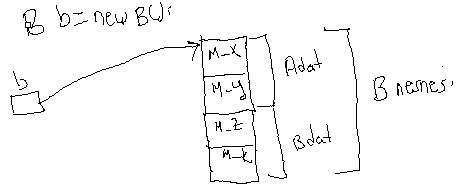 B b = new B();
b
M_X
M_y
M_Z
M_k
Adat
Bdat
B nesnesi